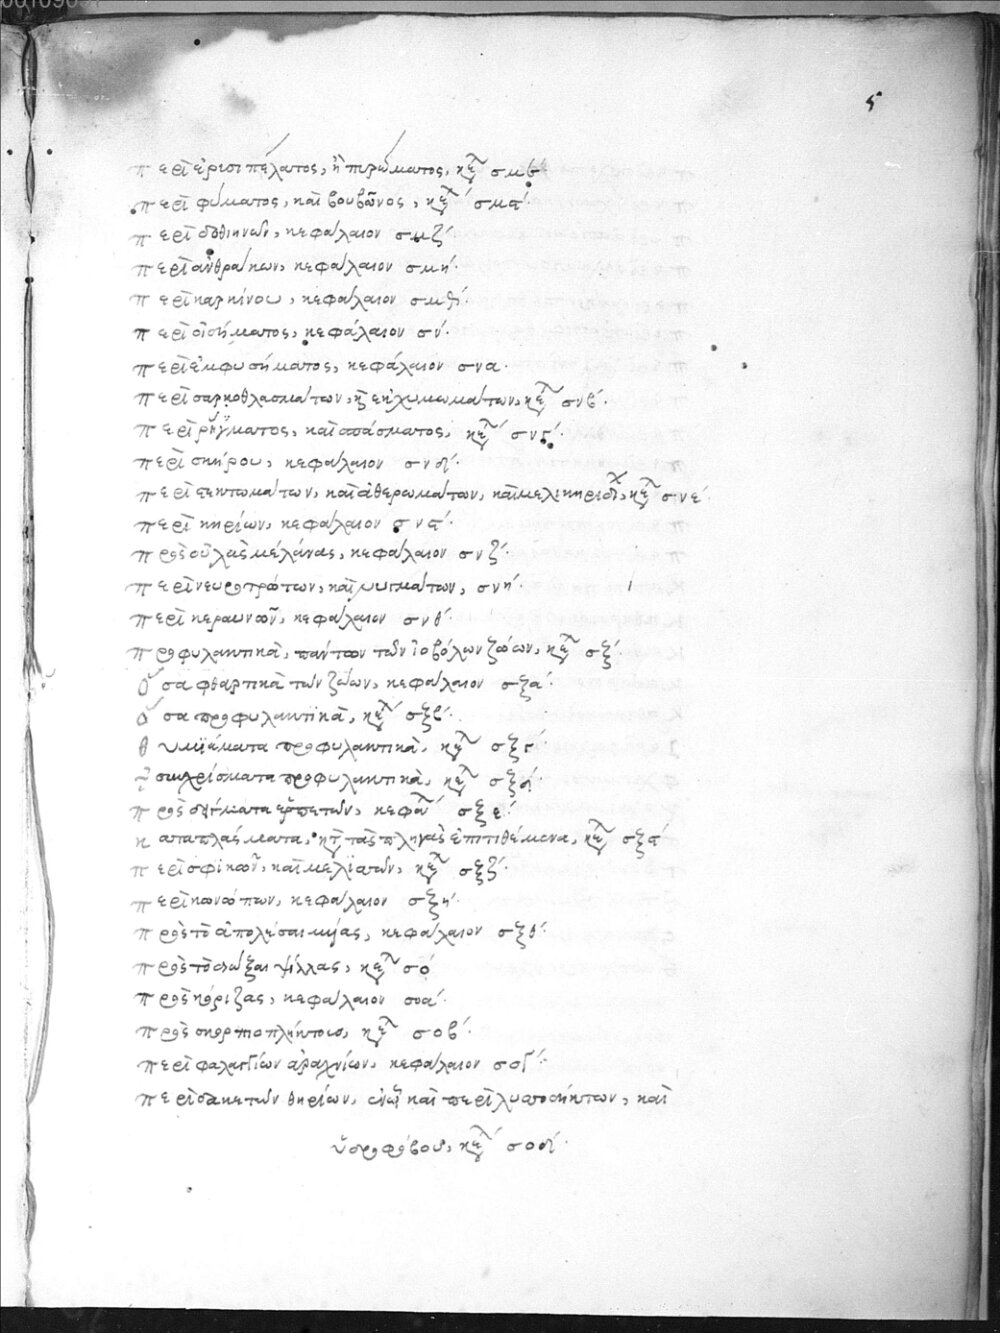 5
περὶ ἐρισιπέλατος, ἢ πυρώματος, κεφ σμε
περὶ φύματος, καὶ βουβῶνος, κεφ σμϛ΄
περὶ δοθιηνῶν, κεφάλαιον σμζ΄
περὶ ἀνθράκων, κεφάλαιον σμη΄
περὶ καρκίνου, κεφάλαιον σμθ΄
περὶ οἰδήματος, κεφάλαιον σν΄
περὶ ἐμφυσήματος, κεφάλαιον σνα
περὶ σαρκοθλασμάτων, καὶ ἐκχυμωμάτων, κεφ σνβ΄
περὶ ῥήγματος, καὶ σπάσματος, κεφ σνγ΄
περὶ σκήρου, κεφάλαιον σνδ΄
περὶ στεατωμάτων, καὶ ἀθερωμάτων, καὶ μελικηρίδων, κεφ σνε΄
περὶ κηρίων, κεφάλαιον σνϛ΄
πρὸς οὐλὰς μελάνας, κεφάλαιον σνζ΄
περὶ νευροτρώτων, καὶ νυγμάτων, σνη΄
περὶ κεραυνοῦ, κεφάλαιον σνθ΄
προφυλακτικὰ, πάντων τῶν ἰοβόλων ζώων, κεφ σξ΄
ὅσα φθαρτικὰ τῶν ζώων, κεφάλαιον σξα΄
ὅσα προφυλακτικὰ, κεφ σξβ΄
θυμιάματα προφυλακτικὰ, κεφ σξγ΄
συγχρίσματα προφυλακτικὰ, κεφ σξδ΄
πρὸς δήγματα ἑρπετῶν, κεφα σξε΄
καταπλάσματα, κατὰ τὰς πληγὰς ἐπιτιθέμενα, κεφ σξϛ΄
περὶ σφικῶν, καὶ μελισσῶν, κεφ σξζ΄
περὶ κωνώπων, κεφάλαιον σξη΄
πρὸς τὸ ἀπολέσαι μυίας, κεφάλαιον σξθ΄
πρὸς τὸ διῶξαι ψύλλας, κεφ σο΄
πρὸς κόριζας, κεφάλαιον σοα΄
πρὸς σκορπιοπλήκτους, κεφ σοβ΄
περὶ φαλαγγίων ἀραχνίων, κεφάλαιον σογ΄
περὶ δακετῶν θηρίων, ἐν ᾧ καὶ περὶ λυσσοδήκτων, καὶ
ὑδροφόβου, κεφ σοδ΄